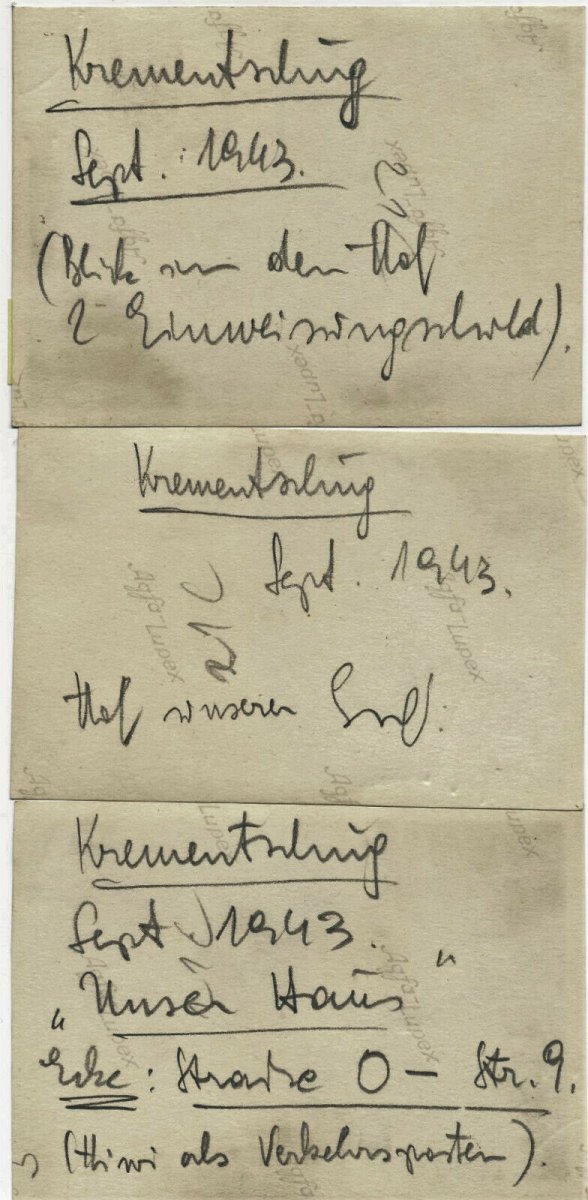 Krementschug
Sept. 1943.
(Blick in den Hof
Einweisungsschild).
Krementschug
Sept. 1943.
Hof unserer
Krementschug
Sept 1943.
„Unser Haus"
Ecke: Straße O – Str. 9.
(Hiwi als Verkehrsposten).
Agfa Lupex